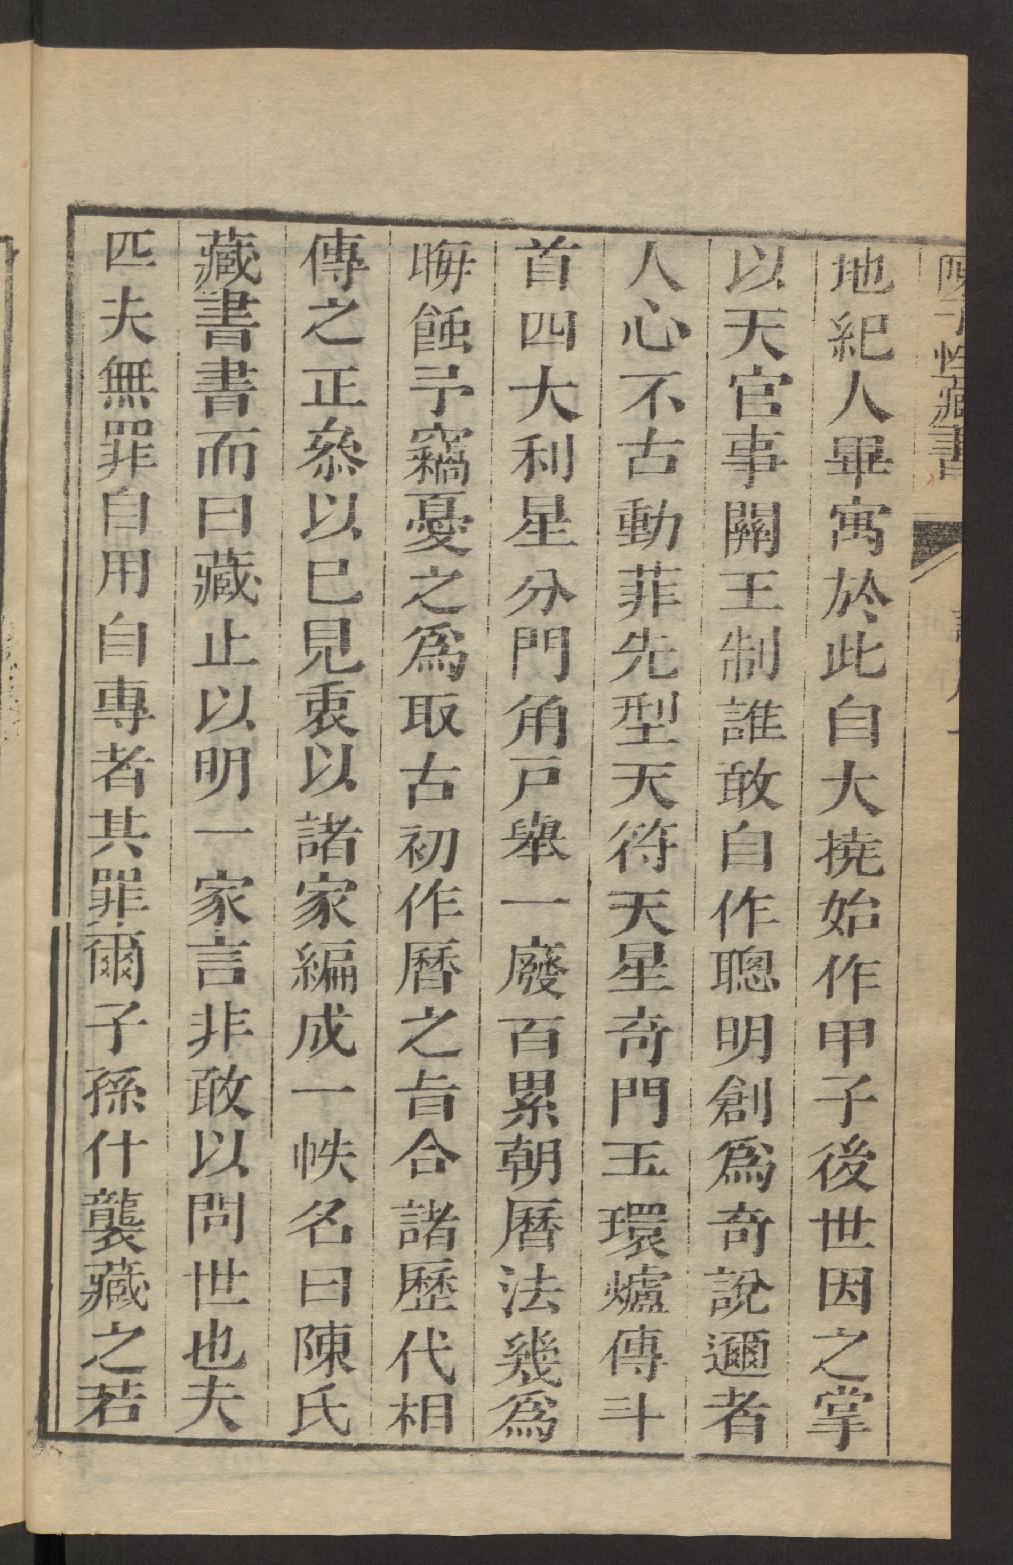 陳子性藏書
地紀人畢寓於此自大撓始作甲子後世因之掌
以天官事關王制誰敢自作聰明創爲奇說邇者
人心不古動菲先型天符天星奇門玉環爐傳斗
首四大利星分門角戸舉一廢百累朝曆法幾爲
晦蝕予竊憂之爲取古初作曆之旨合諸歷代相
傳之正叅以已見衷以諸家編成一帙名曰陳氏
藏書書而曰藏止以明一家言非敢以問世也夫
匹夫無罪自用自專者其罪爾子孫什襲藏之若